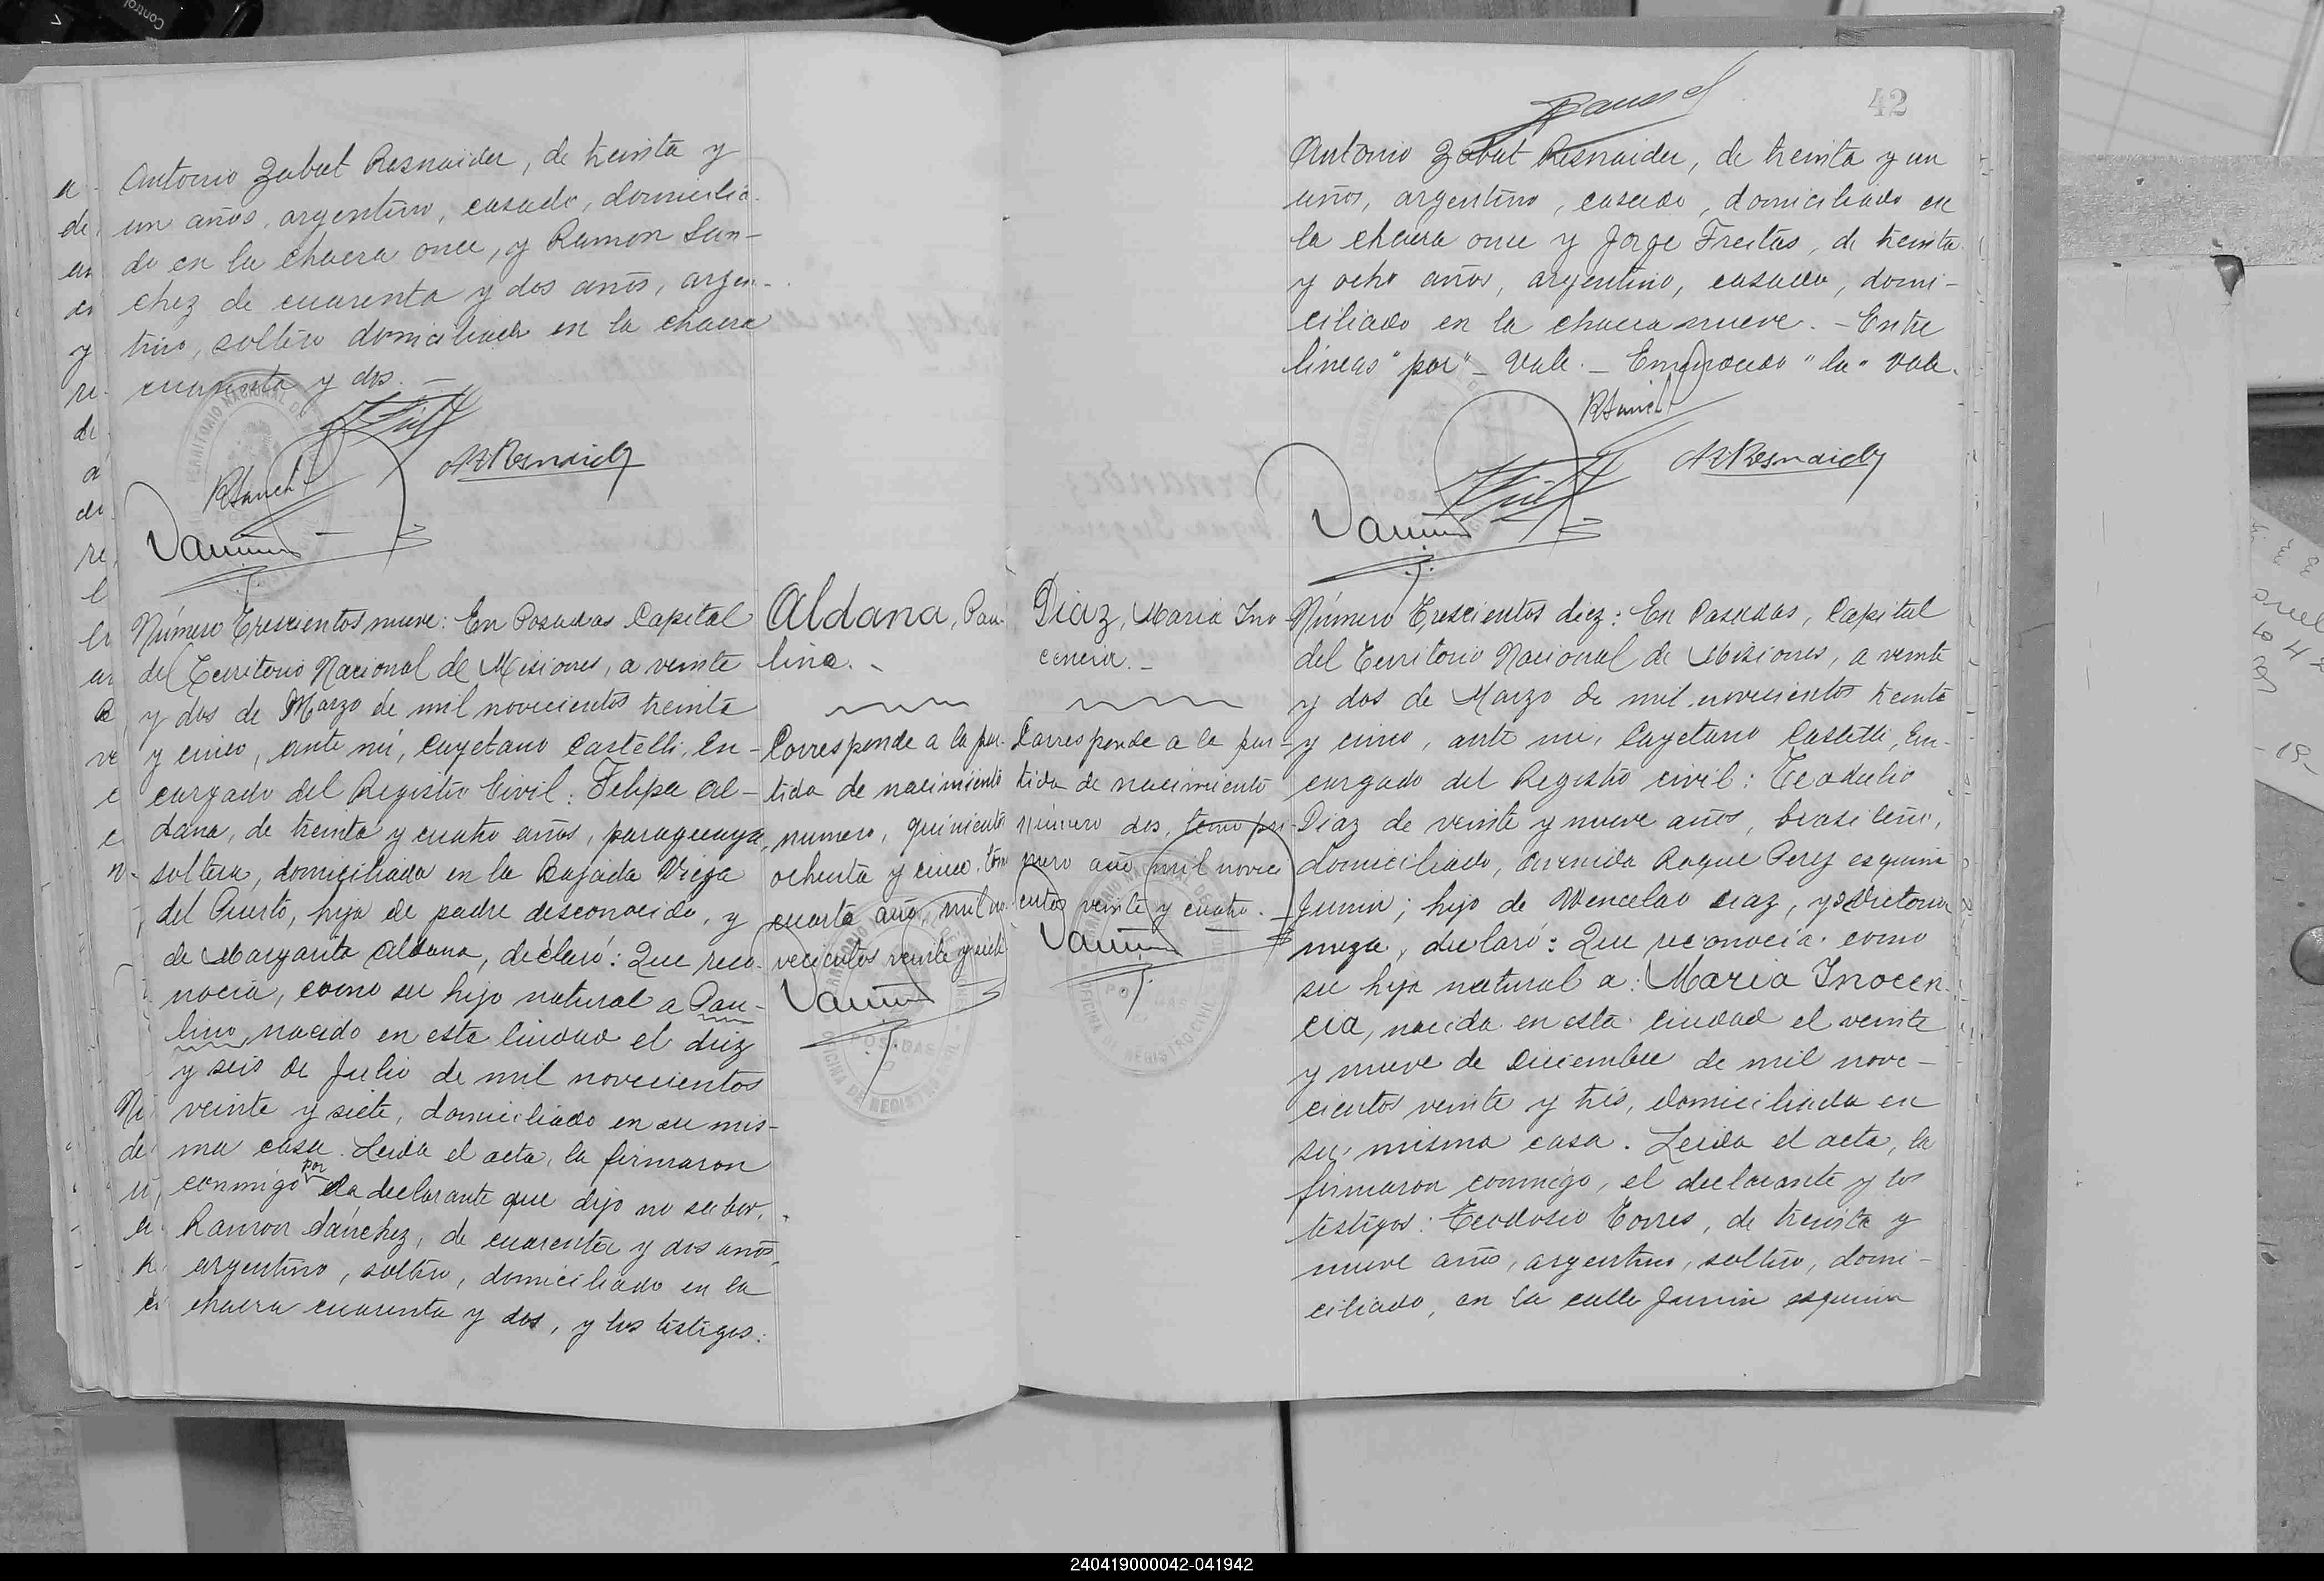 Antonio Zabat Resnaider, de treinta y
un años, argentino, casado, domicilia-
do en la chacra once, y Ramon San-
chez de cuarenta y dos años, argen-
tino, soltero domiciliado en la chacra
cuarenta y dos. —
Número Trescientos nueve: En Posadas Capital
del Territorio Nacional de Misiones, a veinte
y dos de Marzo de mil novecientos treinta
y cinco, ante mí, Cayetano Castelli, En-
cargado del Registro Civil: Felipa Al-
dana, de treinta y cuatro años, paraguaya,
soltera, domiciliada en la Bajada Vieja
del Puerto, hija de padre desconocido, y
de Margarita Aldana, declaró: Que reco-
nocía, como su hijo natural a Pau-
lino, nacido en esta ciudad el diez
y seis de Julio de mil novecientos
veinte y siete, domiciliado en su mis-
ma casa. Leida el acta, la firmaron
conmigo por la declarante que dijo no saber,
Ramon Sánchez, de cuarenta y dos años,
argentino, soltero, domiciliado en la
chacra cuarenta y dos, y los testigos:
Aldana, Pau-
lino. -
Corresponde a la par-
tida de nacimiento
numero, quinientos
ochenta y cinco, tomo
cuarto año mil no-
vecientos veinte y siete
POSADAS
OFICINA DE REGISTRO CIVIL
Diaz, Maria Ino
cencia. -
Corresponde a la par-
tida de nacimiento
número dos, tomo pri-
mero año mil nove
cientos veinte y cuatro. -
POSADAS
OFICINA DE REGISTRO CIVIL
42
Antonio Zabat Resnaider, de treinta y un
años, argentino, casado, domiciliado en
la chacra once y Jorge Freitas, de treinta
y ocho años, argentino, casado, domi-
ciliado en la chacra nueve. - Entre
líneas "por" - Vale. - Enmendado "la" Vale.
Número Trescientos diez: En Posadas, Capital
del Territorio Nacional de Misiones, a veinte
y dos de Marzo de mil novecientos treinta
y cinco, ante mi, Cayetano Castelli, En-
cargado del Registro civil: Teodulio
Diaz de veinte y nueve años, brasileño,
domiciliado, Avenida Roque Perez esquina
Junin; hijo de Wencelao Diaz, y de Victoria
, declaró: Que reconocía como
su hija natural a: Maria Inocen-
cia, nacida en esta ciudad el veinte
y nueve de Diciembre de mil nove-
cientos veinte y tres, domiciliada en
su misma casa. Leida el acta, la
firmaron conmigo, el declarante y los
testigos: Teodosio Torres, de treinta y
nueve años, argentino, soltero, domi-
ciliado, en la calle Junin esquina
240419000042-041942